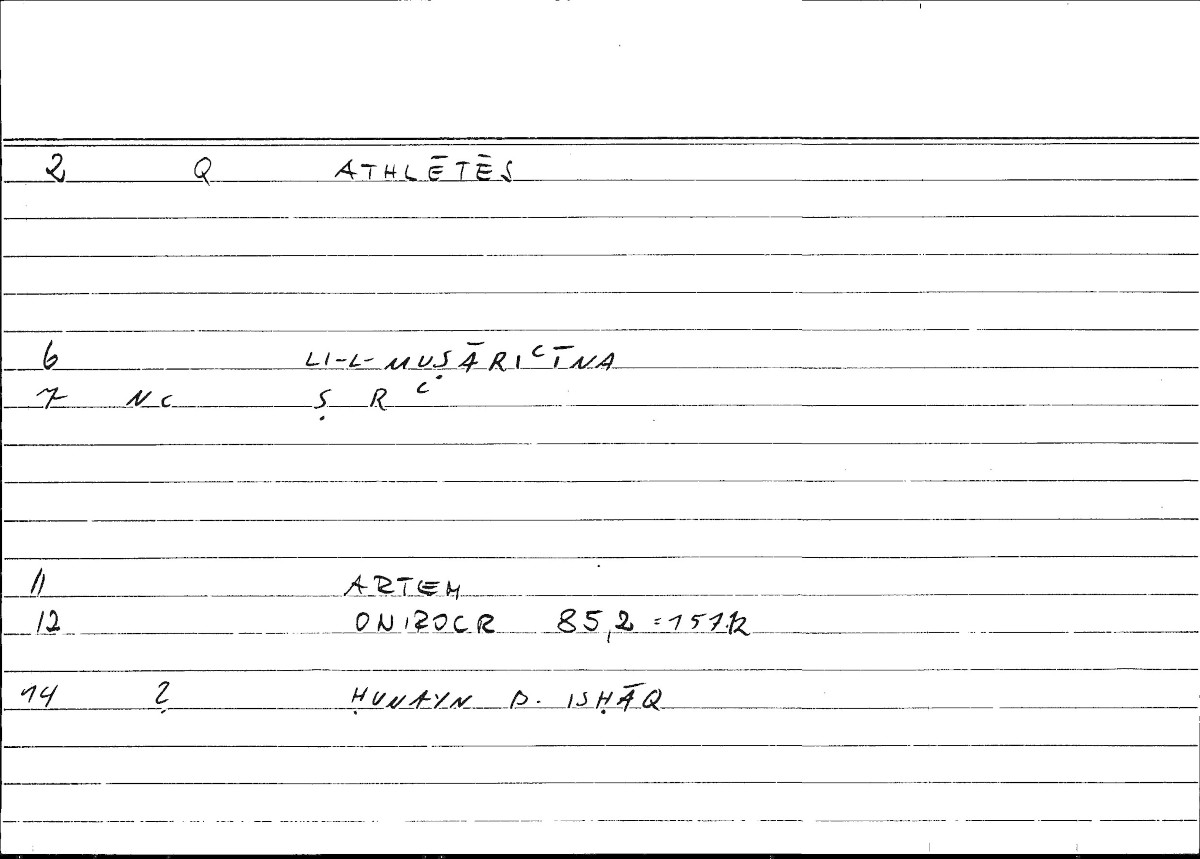 2 Q ATHLĒTĒS
6 LI-L-MUṢĀRIʿĪNA
7 NC Ṣ R ʿ
11 ARTEM
12 ONIROCR 85,2 = 157.12
14 2 ḤUNAYN B. ISḤĀQ